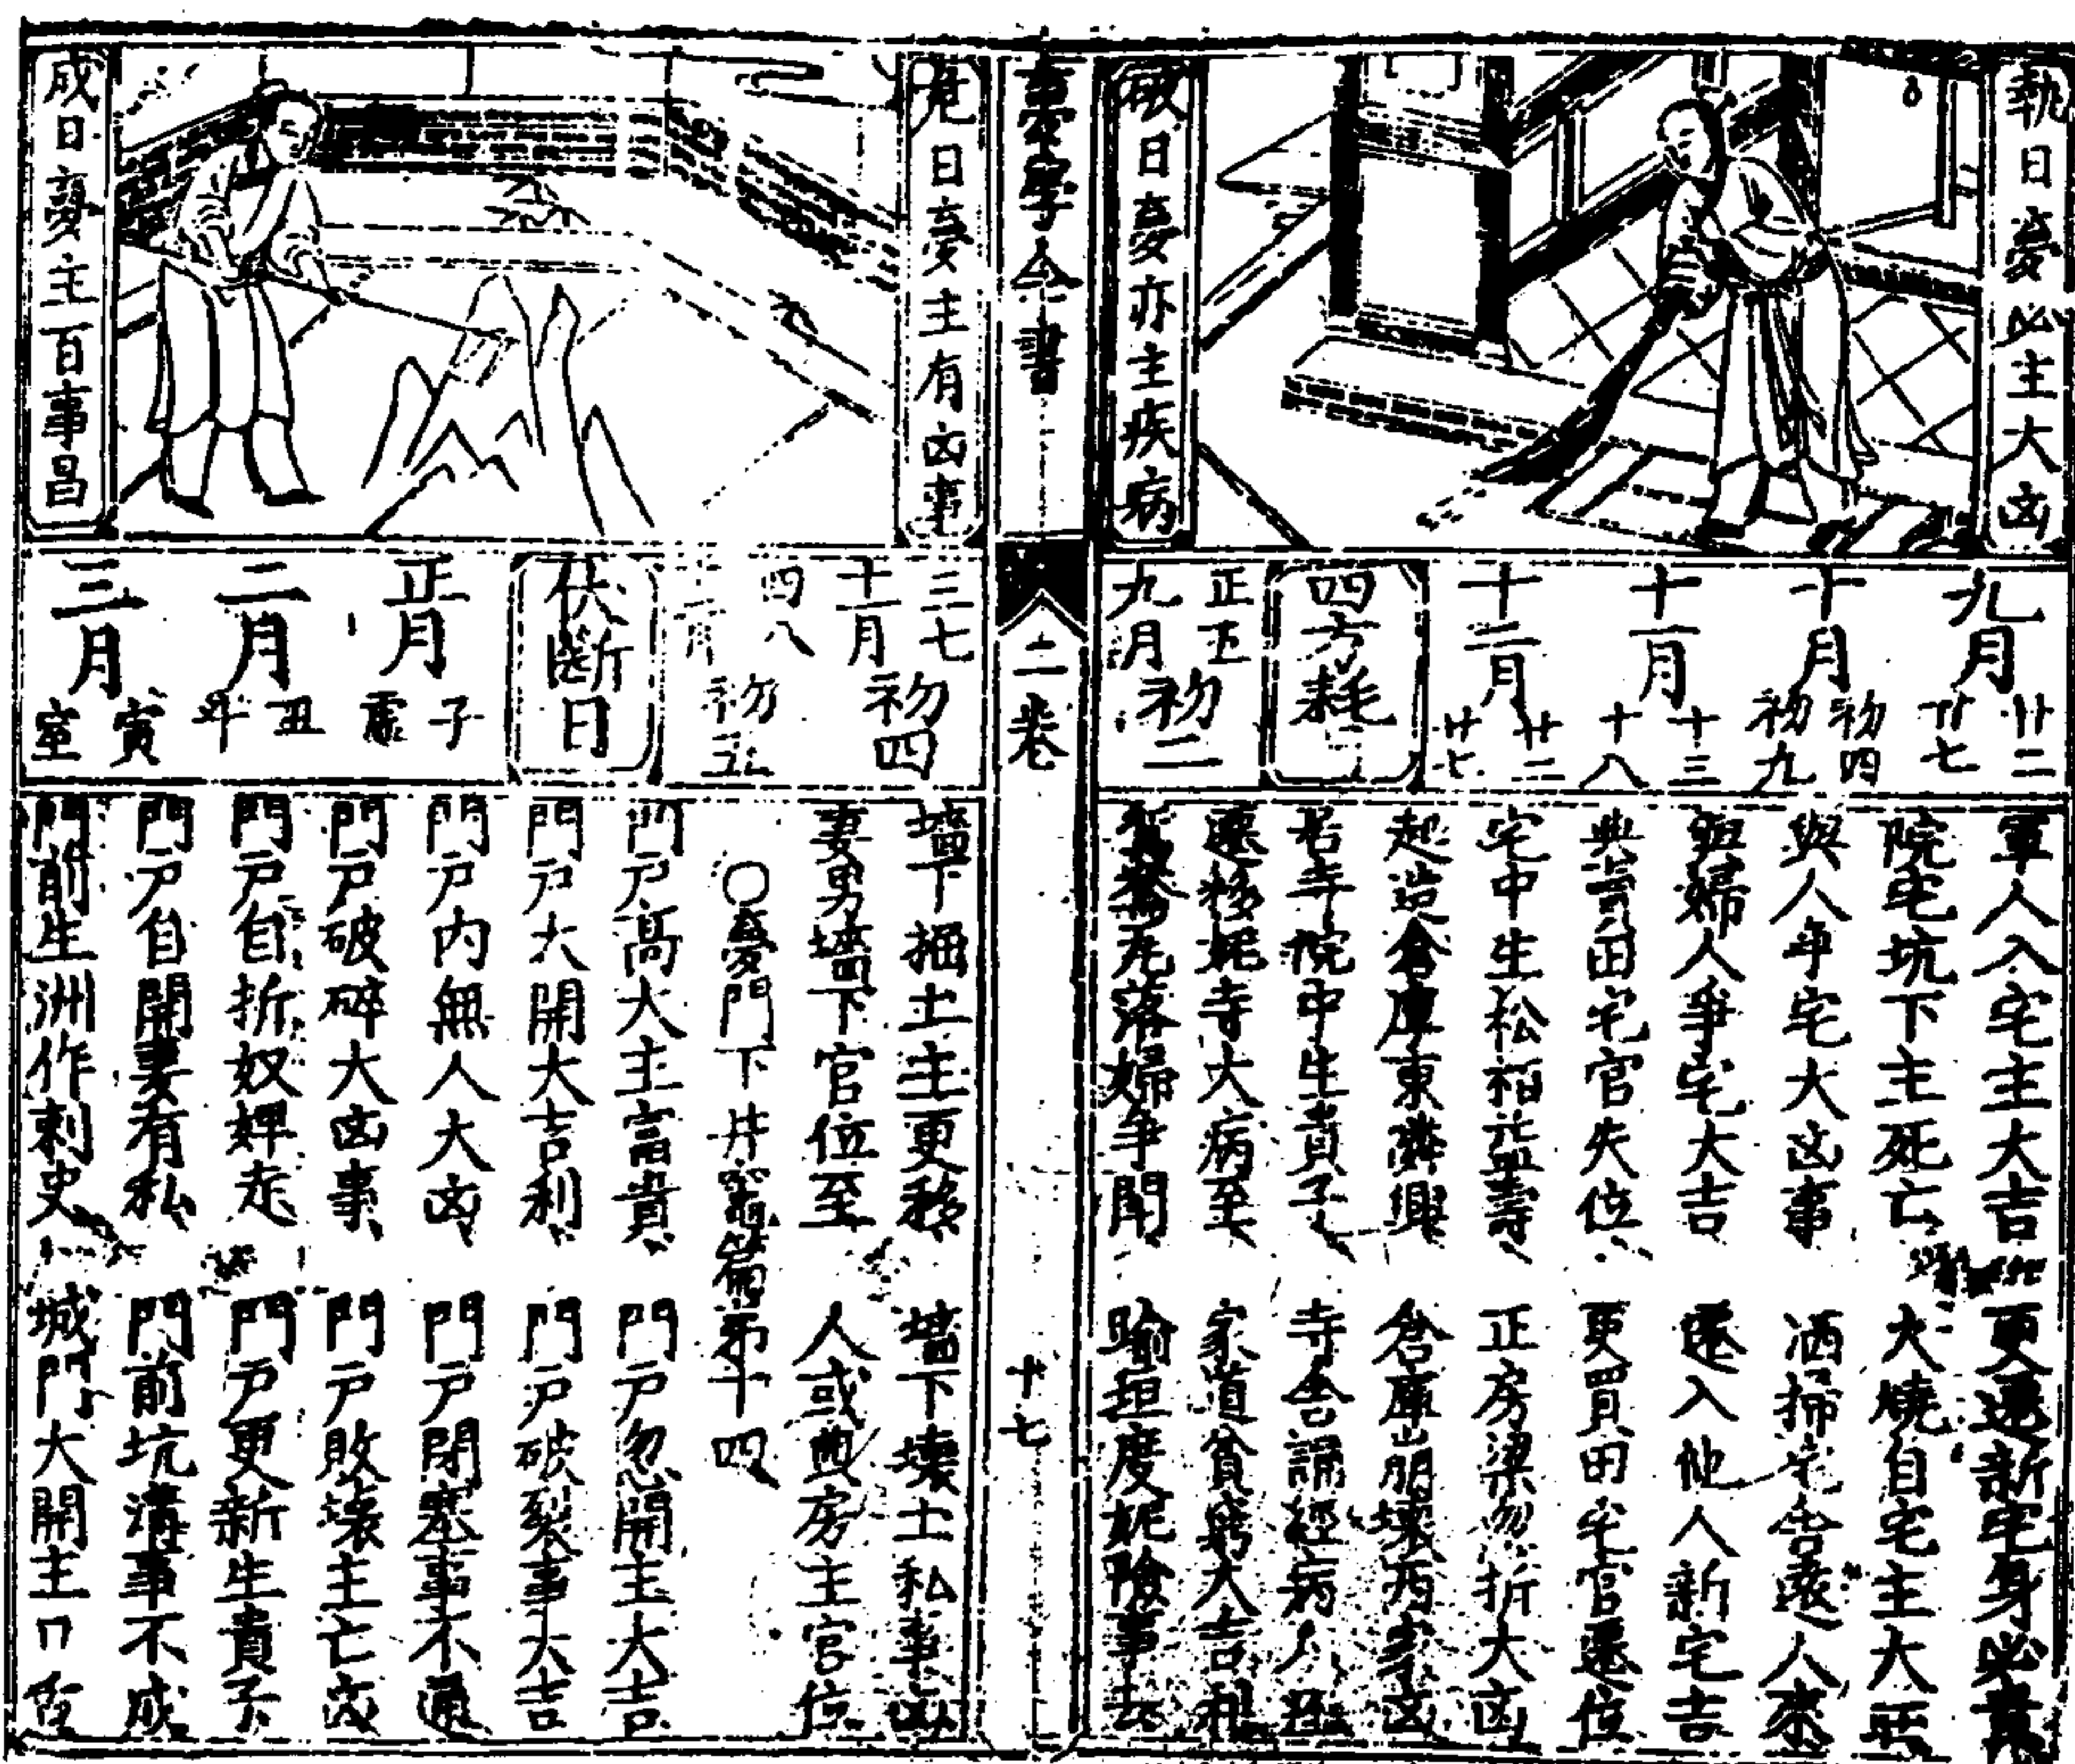 執日夢必主大凶
破日夢亦主疾病
九月
廿二
廿七
十月
初四
初九
十一月
十三
十八
十二月
廿二
廿七
四方耗
正五
九月
初二
軍人入宅主大吉
更遷新宅身必貴
院宅坑下主死亡
火燒自宅主大旺
與人爭宅大凶事
洒掃宅舍遠人來
與婦人爭宅大吉
遷入他人新宅吉
典賣田宅官失位
更買田宅官遷位
宅中生松柏益壽
正房梁忽折大凶
起造倉庫東隣興
倉庫崩壞兩家凶
若寺院中生貴子
寺舍誦經病人
遷移妮寺大病至
家道貧窮大吉利
鴛鴦瓦落婦爭鬧
踰垣度妮陰事去
夢字全書
二卷
十七
危日夢主有凶事
成日夢主百事昌
三七
十一月
初四
四八
初五
伏斷日
正月
子
虛
二月
丑
斗
三月
寅
室
墻下掘土主更移
墻下壞土私事凶
妻男墻下官位至
人或興房主官位
〇夢門下井竈篇第十四
門戶高大主富貴
門戶忽開主大吉
門戶大開大吉利
門戶破裂事大吉
門戶內無人大凶
門戶閉塞事不通
門戶破碎大凶事
門戶敗壞主亡凶
門戶自折奴婢走
門戶更新生貴子
門戶自開妻有私
門前坑溝事不成
門前生洲作刺史
城門大開主口舌